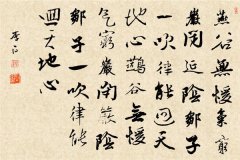 燕谷無暖氣窮
巖閉陰鄒子
一吹律能回天
地心燕谷無暖
气窮巖閉陰
鄒子一吹律能
回天地心